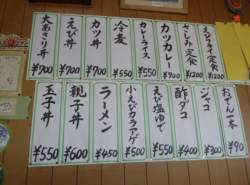 えびフライ定食 ¥1200
さしみ定食 ¥1200
カツカレー ¥900
カレーライス ¥550
冷麦 ¥550
カツ丼 ¥700
えび丼 ¥700
大あさり丼 ¥700
おでん一本 ¥90
ジャコ ¥300
酢ダコ ¥400
えび塩ゆで ¥550
小えびカラアゲ ¥500
ラーメン ¥450
親子丼 ¥600
玉子丼 ¥550